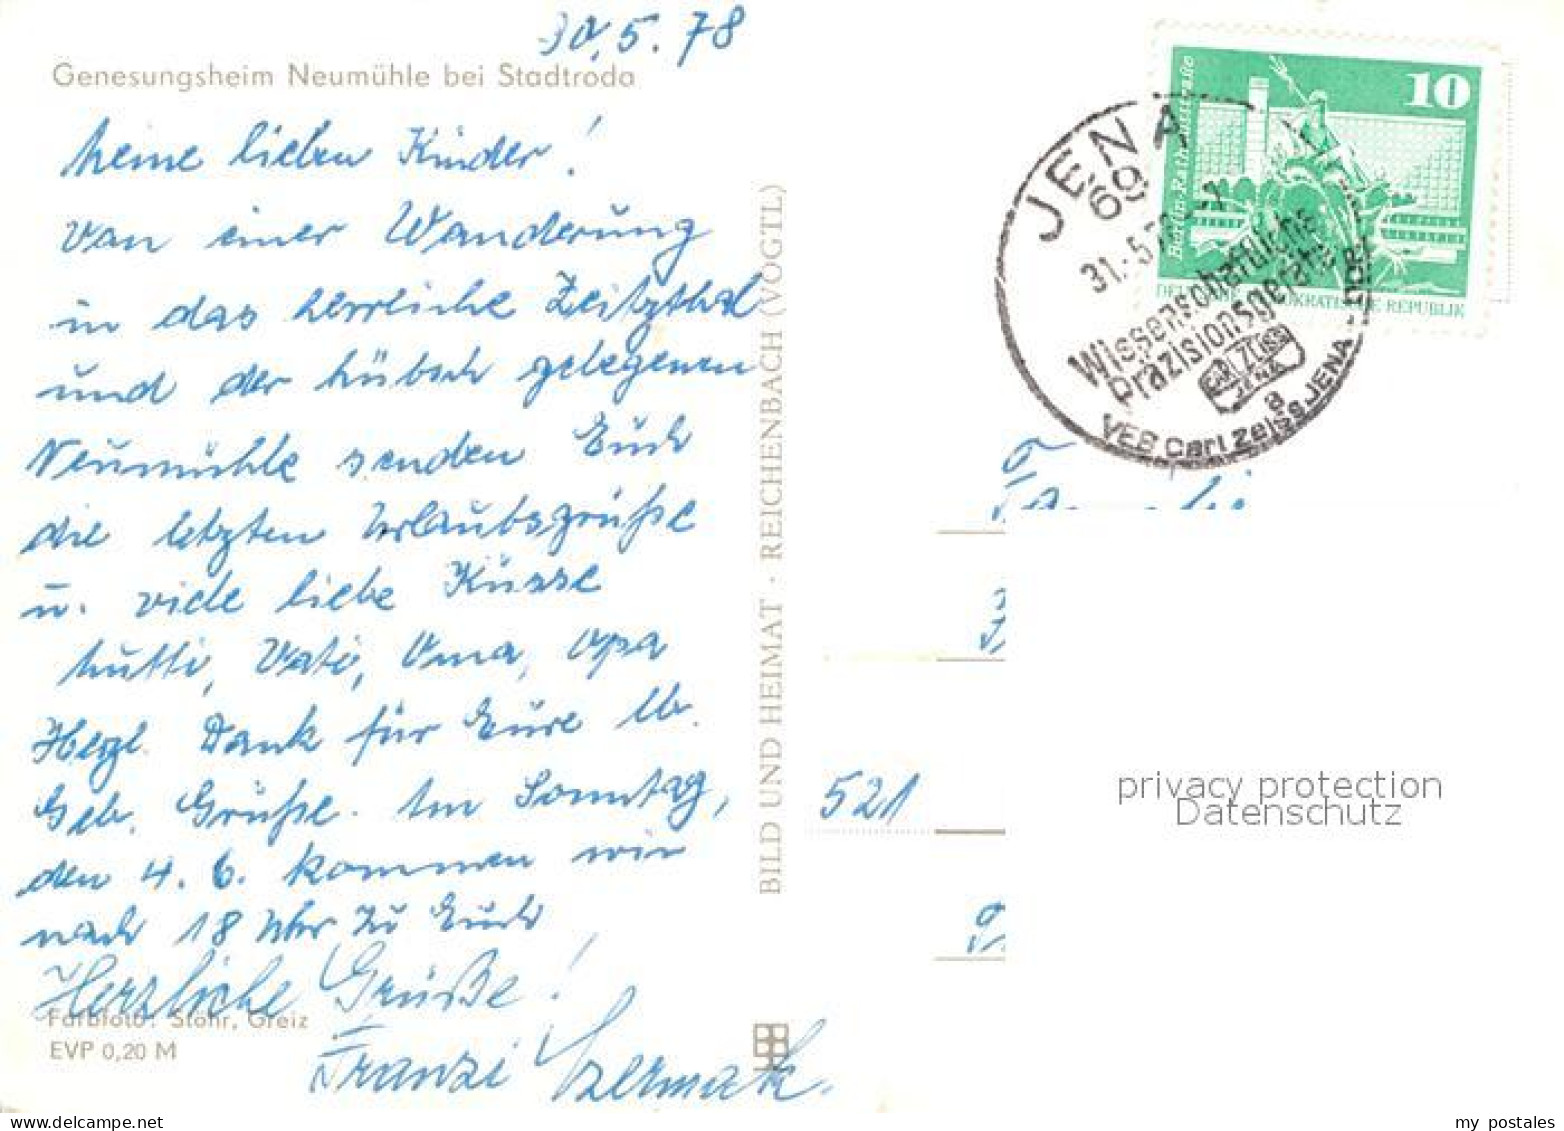 30.5.78
Genesungsheim Neumühle bei Stadtroda
Meine lieben Kinder!
Von einer Wanderung
in das herrliche Zeitzthal
und der hübsch gelegenen
Neumühle senden Euch
die letzten Urlaubsgrüße
u. viele liebe Küsse
Mutti, Vati, Oma, Opa
Herzl. Dank für Eure lb.
Geb. Grüße. Am Sonntag,
den 4.6. kommen wir
nach 18 Uhr zu Euch
Herzliche Grüße!
Farbfoto: Stöhr, Greiz
EVP 0,20 M
Franzi
BILD UND HEIMAT · REICHENBACH (VOGTL)
10
Berlin, Rathausstraße
DEUTSCHE DEMOKRATISCHE REPUBLIK
JENA
69
31.-5.
Wissenschaftliche
Präzisionsgeräte
CARL ZEISS
JENA
a
VEB Carl Zeiss JENA - DDR
521
privacy protection
Datenschutz
my postales